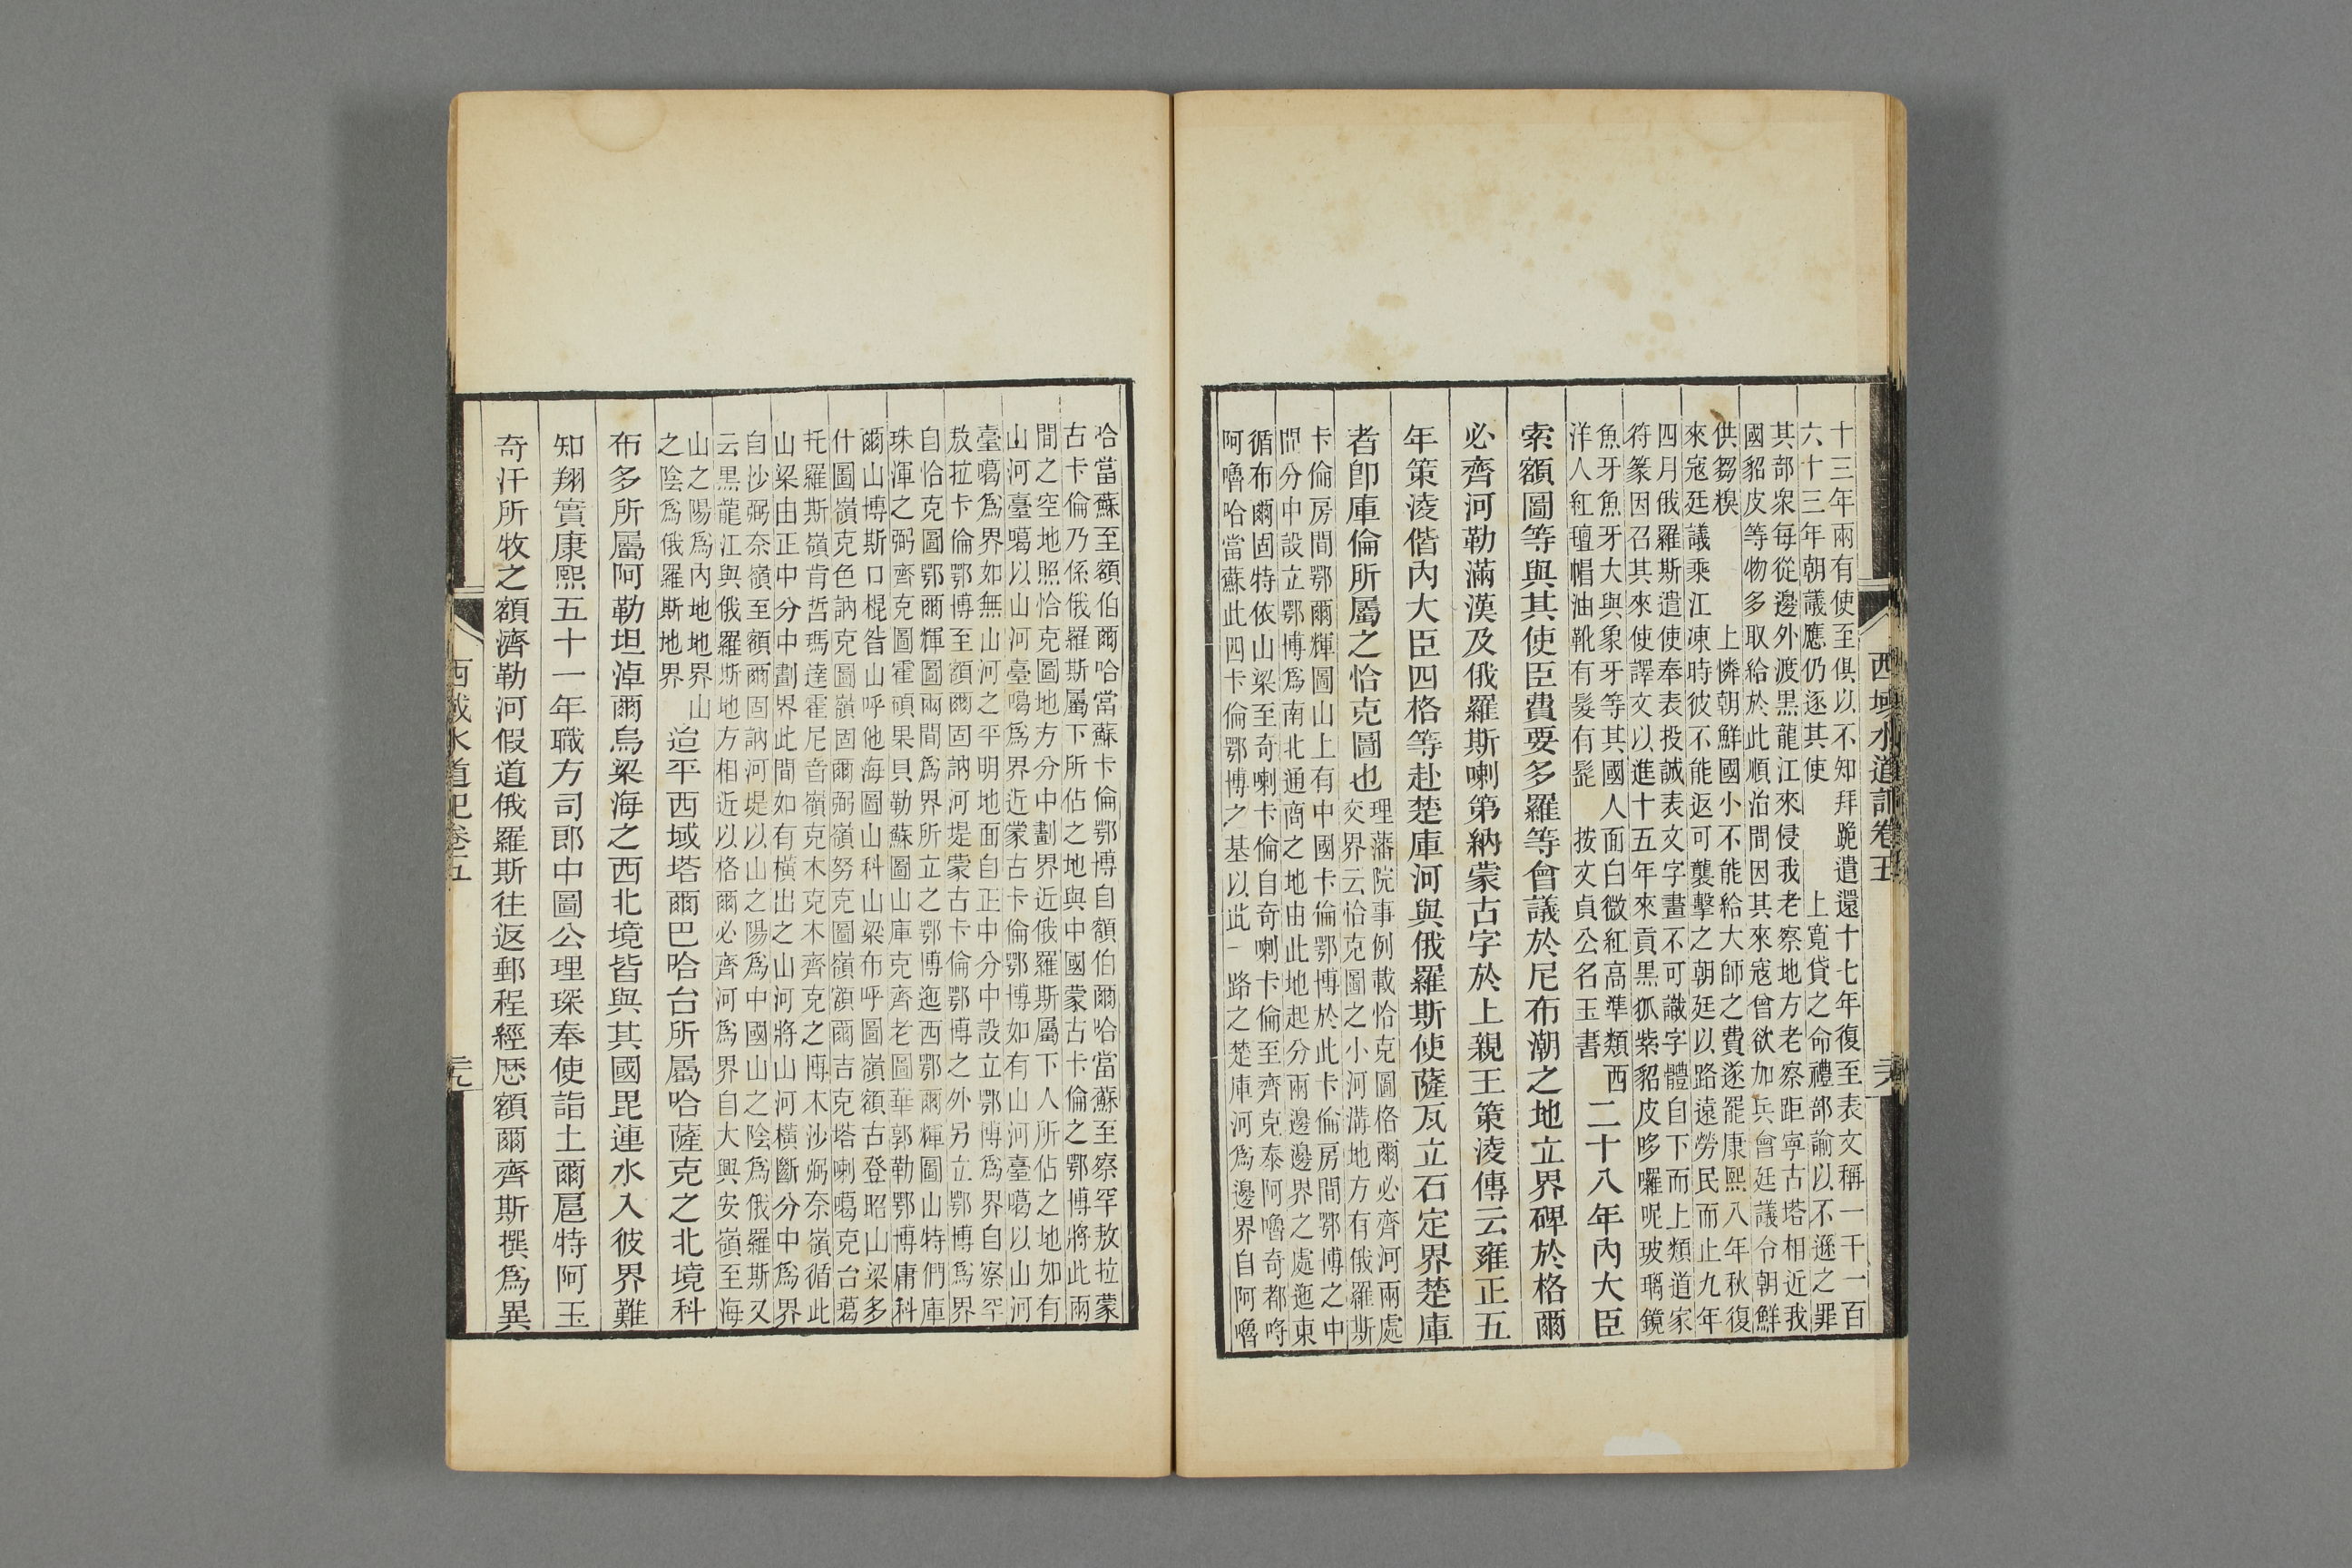 西域水道記卷五
十三年兩有使至俱以不知拜跪遣還十七年復至表文稱一千一百
六十三年朝議應仍逐其使　　　上寬貸之命禮部諭以不遜之罪
其部衆每從邊外渡黑龍江來侵我老察地方老察距寧古塔相近我
國貂皮等物多取給於此順治間因其來寇曾欲加兵曾廷議令朝鮮
供芻糗　　　上憐朝鮮國小不能給大師之費遂罷康熙八年秋復
來寇廷議乘江凍時彼不能返可襲擊之朝廷以路遠勞民而止九年
四月俄羅斯遣使奉表投誠表文字畫不可識字體自下而上類道家
符篆因召其來使譯文以進十五年來貢黑狐紫貂皮哆囉呢玻璃鏡
魚牙魚牙大與象牙等其國人面白微紅高準類西
洋人紅氊帽油靴有髮有髭　按文貞公名玉書
二十八年內大臣
索額圖等與其使臣費要多羅等會議於尼布潮之地立界碑於格爾
必齊河勒滿漢及俄羅斯喇第納蒙古字於上親王策淩傳云雍正五
年策淩偕內大臣四格等赴楚庫河與俄羅斯使薩瓦立石定界楚庫
者卽庫倫所屬之恰克圖也
理藩院事例載恰克圖格爾必齊河兩處
交界云恰克圖之小河溝地方有俄羅斯
卡倫房間鄂爾輝圖山上有中國卡倫鄂博於此卡倫房間鄂博之中
間分中設立鄂博爲南北通商之地由此地起分兩邊邊界之處迤東
循布爾固特依山梁至奇喇卡倫自奇喇卡倫至齊克泰阿嚕奇都哷
阿嚕哈當蘇此四卡倫鄂博之基以此一路之楚庫河爲邊界自阿嚕
哈當蘇至額伯爾哈當蘇卡倫鄂博自額伯爾哈當蘇至察罕敖拉蒙
古卡倫乃係俄羅斯屬下所佔之地與中國蒙古卡倫之鄂博將此兩
間之空地照恰克圖地方分中劃界近俄羅斯屬下人所佔之地如有
山河臺噶以山河臺噶爲界近蒙古卡倫鄂博如有山河臺噶以山河
臺噶爲界如無山河之平明地面自正中分中設立鄂博爲界自察罕
敖拉卡倫鄂博至額爾固訥河堤蒙古卡倫鄂博之外另立鄂博爲界
自恰克圖鄂爾輝圖兩間爲界所立之鄂博迤西鄂爾輝圖山特們庫
珠渾之弼齊克圖霍碩果貝勒蘇圖山庫克齊老圖華郭勒鄂博庸科
爾山博斯口棍昝山呼他海圖山科山梁布呼圖嶺額古登昭山梁多
什圖嶺克色訥克圖嶺固爾弼嶺努克圖嶺額爾吉克塔喇噶克台噶
托羅斯嶺肯哲瑪達霍尼音嶺克木克木齊克之博木沙弼奈嶺循此
山梁由正中分中劃界此間如有橫出之山河將山河橫斷分中爲界
自沙弼奈嶺至額爾固訥河堤以山之陽爲中國山之陰爲俄羅斯又
云黑龍江與俄羅斯地方相近以格爾必齊河爲界自大興安嶺至海
山之陽爲內地地界山
之陰爲俄羅斯地界
迨平西域塔爾巴哈台所屬哈薩克之北境科
布多所屬阿勒坦淖爾烏梁海之西北境皆與其國毘連水入彼界難
知翔實康熙五十一年職方司郎中圖公理琛奉使詣土爾扈特阿玉
奇汗所牧之額濟勒河假道俄羅斯往返郵程經歷額爾齊斯撰爲異
西域水道記卷五